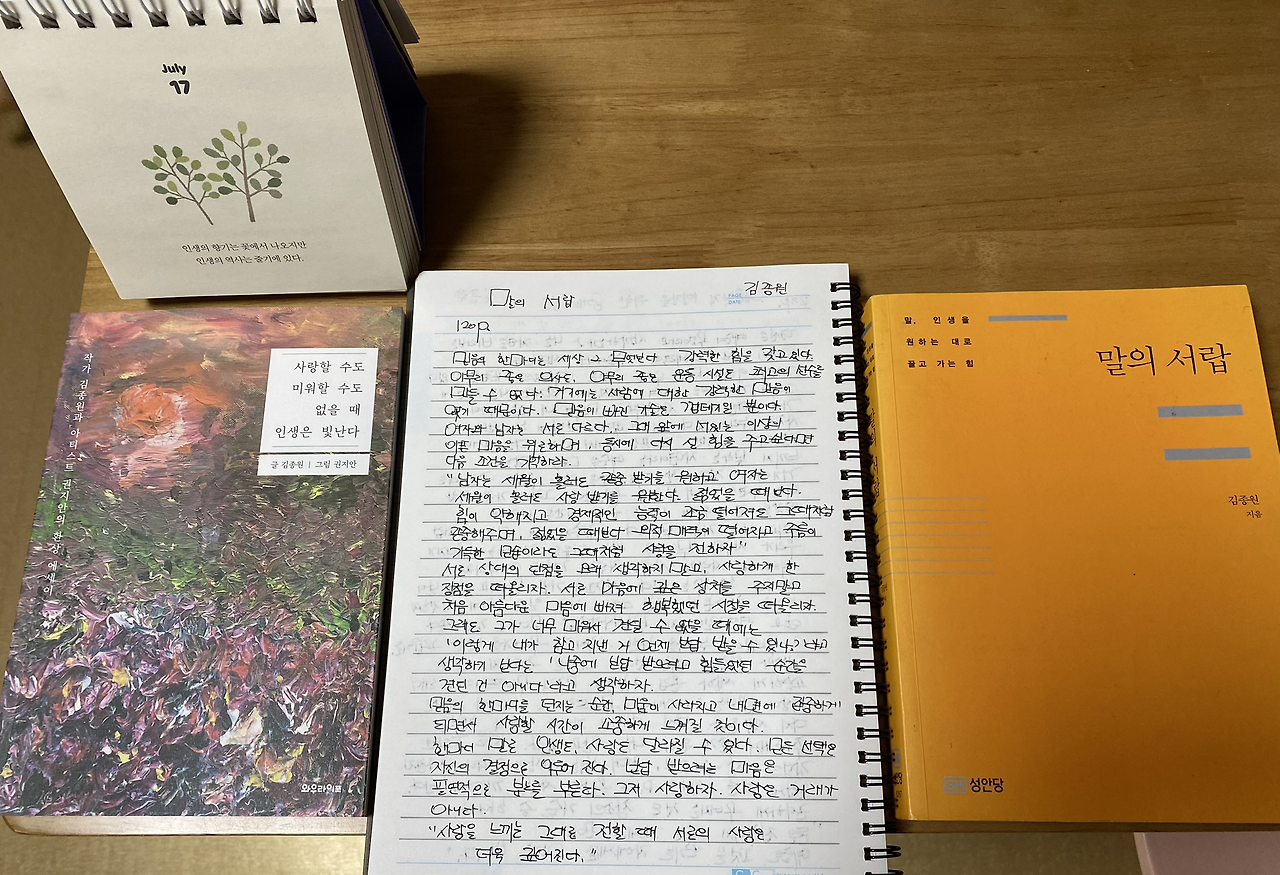 July
17
인생의 향기는 꽃에서 나오지만
인생의 역사는 줄기에 있다.
작가 김종원과 아티스트 권지안의 환상 에세이
사랑할 수도
미워할 수도
없을 때
인생은 빛난다
글 김종원 | 그림 권지안
와우라이프
말의 서랍
PAGE
DATE
김종원
120p
믿음의 한마디는 세상 그 무엇보다 강력한 힘을 갖고 있다.
아무리 좋은 의사도, 아무리 좋은 운동 시설도 최고의 선수를
만들 수 없다. 거기에는 사람에 대한 강력한 믿음이
없기 때문이다. 믿음이 빠진 기술은 껍데기일 뿐이다.
여자와 남자는 서로 다르다. 그대 앞에 서있는 이성의
아픈 마음을 위로하며, 동시에 다시 설 힘을 주고 싶다면
다음 조건을 기억하라.
"남자는 세월이 흘러도 존중 받기를 원하고 여자는
세월이 흘러도 사랑 받기를 원한다. 젊었을 때보다
힘이 약해지고 경제적인 능력이 조금 떨어져도 그때처럼
존중해주며, 젊었을 때보다 외적 매력이 떨어지고 주름이
가득한 모습이라도 그때처럼 사랑을 전하자"
서로 상대의 단점을 오래 생각하지 말고, 사랑하게 한
장점을 떠올리자. 서로 마음에 깊은 상처를 주지말고
처음 아름다운 마음에 빠져 행복했던 시절을 떠올리자.
그래도 그가 너무 미워서 견딜 수 없을 때에는
'이렇게 내가 참고 지낸 거 언제 보답 받을 수 있나?'라고
생각하기 보다는 '나중에 보답 받으려고 힘들었던 순간을
견딘 건 아니다'라고 생각하자.
믿음의 한마디를 던지는 순간, 미움이 사라지고 내면에 잔잔하게
되면서 사랑할 시간이 소중하게 느껴질 것이다.
한마디 말로 인생도, 사랑도 달라질 수 있다. 모든 선택은
자신의 결정으로 이루어 진다. 보답 받으려는 마음은
필연적으로 분노를 부른다. 그저 사랑하자. 사랑은 거래가
아니다.
"사랑을 느끼는 그대로 전할 때 서로의 사랑은
더욱 깊어진다."
말, 인생을
원하는 대로
끌고 가는 힘
말의 서랍
김종원
지음
성안당